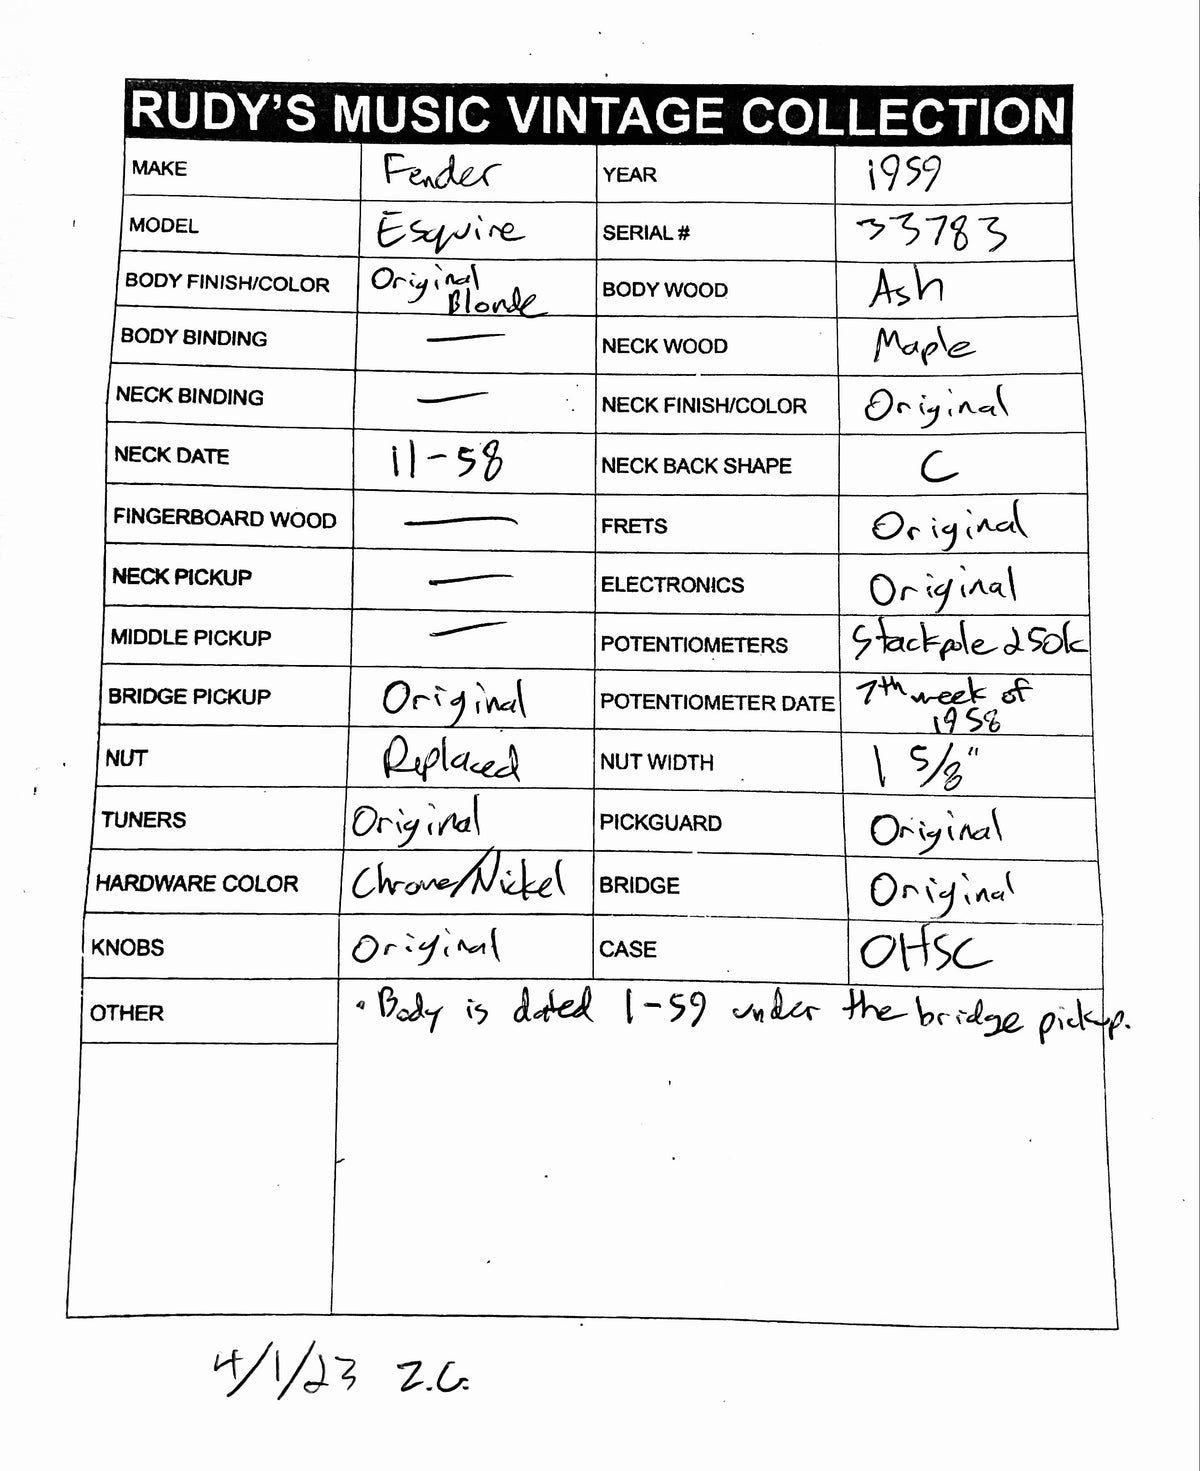 RUDY'S MUSIC VINTAGE COLLECTION
MAKE Fender YEAR 1959
MODEL Esquire SERIAL # 33783
BODY FINISH/COLOR Original Blonde BODY WOOD Ash
BODY BINDING — NECK WOOD Maple
NECK BINDING — NECK FINISH/COLOR Original
NECK DATE 11-58 NECK BACK SHAPE C
FINGERBOARD WOOD — FRETS Original
NECK PICKUP — ELECTRONICS Original
MIDDLE PICKUP — POTENTIOMETERS Stackpole 250k
BRIDGE PICKUP Original POTENTIOMETER DATE 7th week of 1958
NUT Replaced NUT WIDTH 1 5/8"
TUNERS Original PICKGUARD Original
HARDWARE COLOR Chrome/Nickel BRIDGE Original
KNOBS Original CASE OHSC
OTHER • Body is dated 1-59 under the bridge pickup.
4/1/23 Z.G.